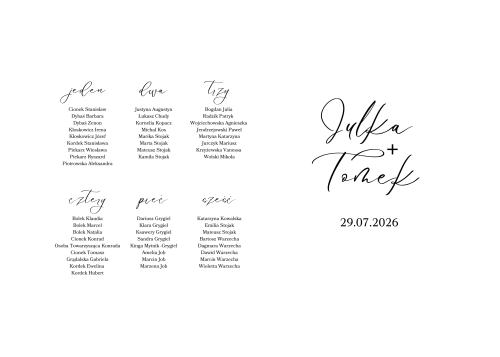 jeden
Cionek Stanisław
Dybaś Barbara
Dybaś Zenon
Kłoskowicz Irena
Kłoskowicz Józef
Kordek Stanisława
Piekarz Wiesława
Piekarz Ryszard
Piotrowska Aleksandra
dwa
Justyna Augustyn
Łukasz Chudy
Kornelia Kopacz
Michał Kos
Marika Stojak
Marta Stojak
Mateusz Stojak
Kamila Stojak
trzy
Bogdan Julia
Radzik Patryk
Wojciechowska Agnieszka
Jendrzejowski Paweł
Martyna Katarzyna
Jurczyk Mariusz
Krzyżowska Vanessa
Wolski Mikola
Julka
+
Tomek
29.07.2026
cztery
Bolek Klaudia
Bolek Marcel
Bolek Natalia
Cionek Konrad
Osoba Towarzysząca Konrada
Cionek Tomasz
Grądalska Gabriela
Kordek Ewelina
Kordek Hubert
pięć
Dariusz Grygiel
Klara Grygiel
Ksawery Grygiel
Sandra Grygiel
Kinga Mytnik-Grygiel
Amelia Job
Marcin Job
Marzena Job
sześć
Katarzyna Kowalska
Emilia Stojak
Mateusz Stojak
Bartosz Warzecha
Dagmara Warzecha
Dawid Warzecha
Marcin Warzecha
Wioletta Warzecha